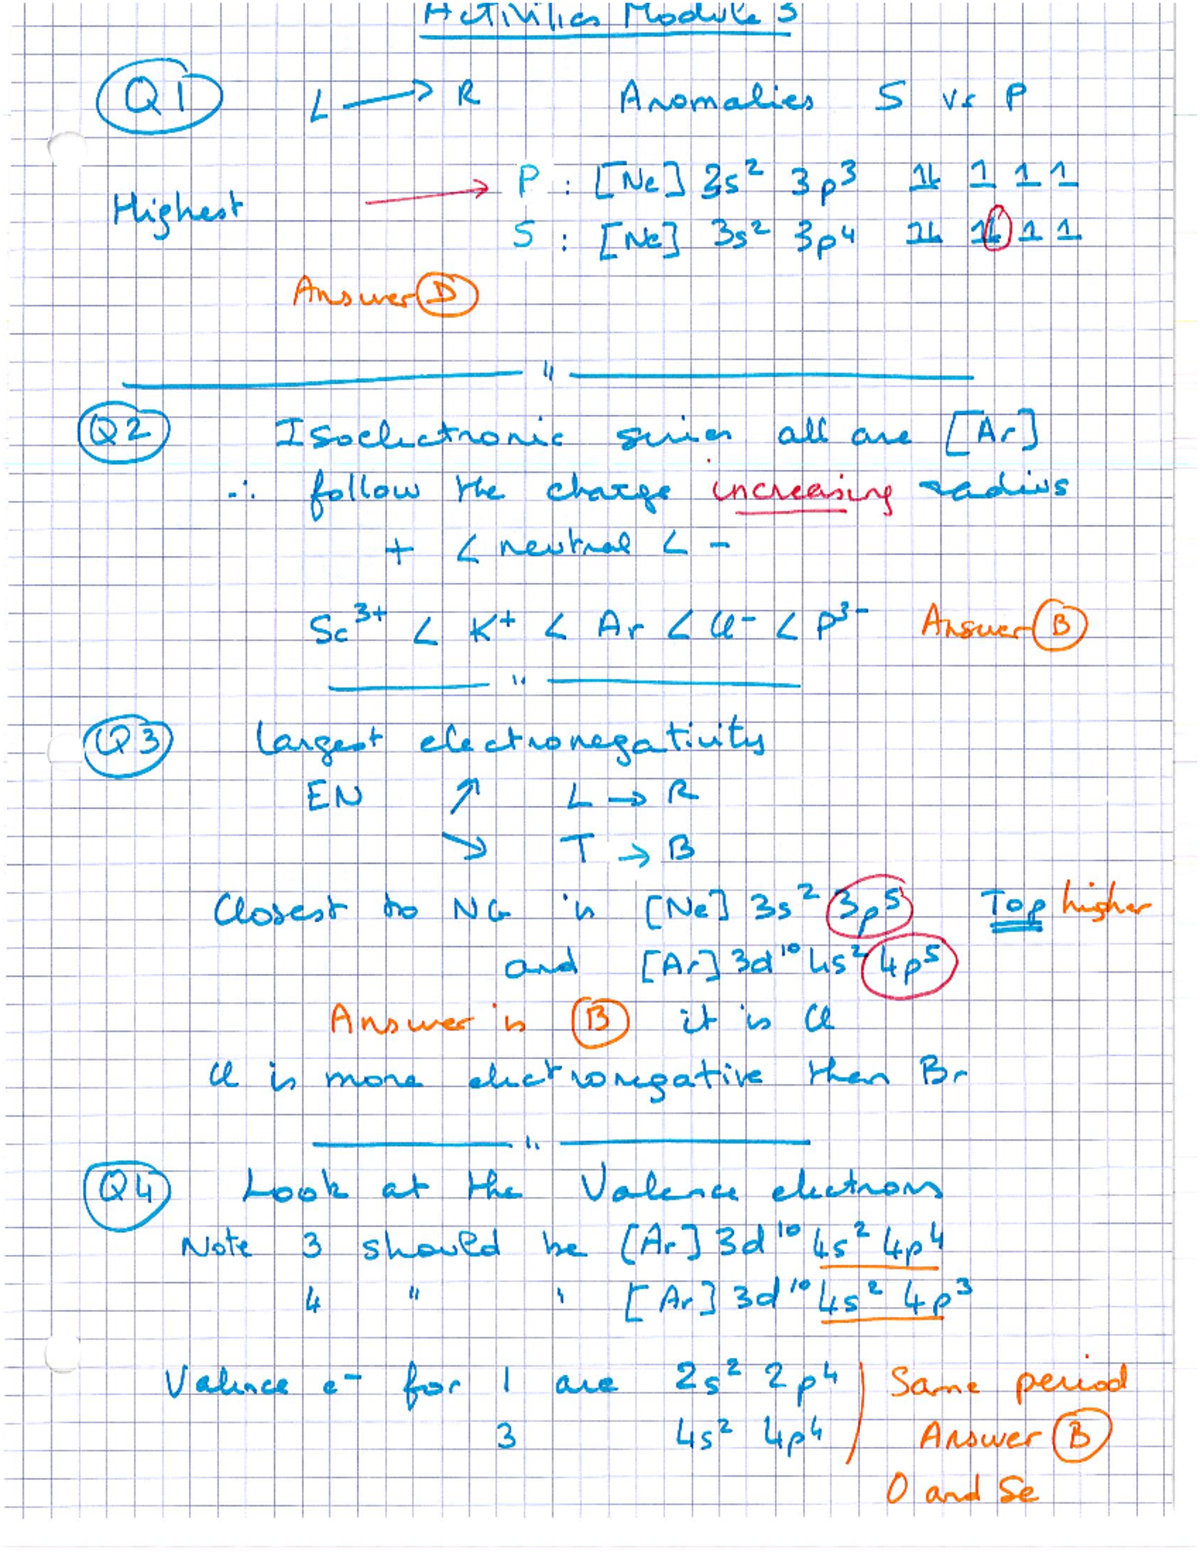 Activities Module 5
Q1 L → R Anomalies S vs P
Highest → P : [Ne] 3s² 3p³ 1l 1 1 1
S : [Ne] 3s² 3p⁴ 1l 1l 1 1
Answer D
"
Q2 Isoelectronic series all are [Ar]
∴ follow the charge increasing radius
+ < neutral < -
Sc³⁺ < K⁺ < Ar < Cl⁻ < P³⁻ Answer B
"
Q3 Largest electronegativity
EN ↗ L → R
↘ T → B
Closest to NG is [Ne] 3s² 3p⁵ Top higher
and [Ar] 3d¹⁰ 4s² 4p⁵
Answer is B it is Cl
Cl is more electronegative than Br
"
Q4 Look at the Valence electrons
Note 3 should be [Ar] 3d¹⁰ 4s² 4p⁴
4 " " [Ar] 3d¹⁰ 4s² 4p³
Valence e⁻ for 1 are 2s² 2p⁴ Same period
3 4s² 4p⁴ Answer B
O and Se